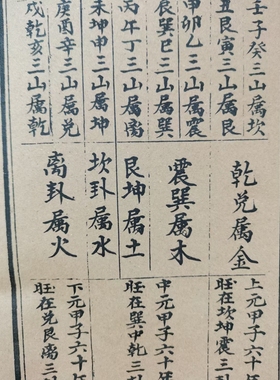 壬子癸三山属坎
丑艮寅三山属艮
甲卯乙三山属震
辰巽巳三山属巽
丙午丁三山属离
未坤申三山属坤
庚酉辛三山属兑
戌乾亥三山属乾
乾兑属金
震巽属木
艮坤属土
坎卦属水
离卦属火
上元甲子六十年
旺在坎坤震三卦
中元甲子六十年
旺在巽中乾三卦
下元甲子六十年
旺在兑艮离三卦